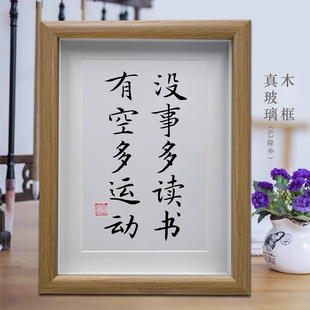 没事多读书
有空多运动
真木
玻框
璃
(A3除外)